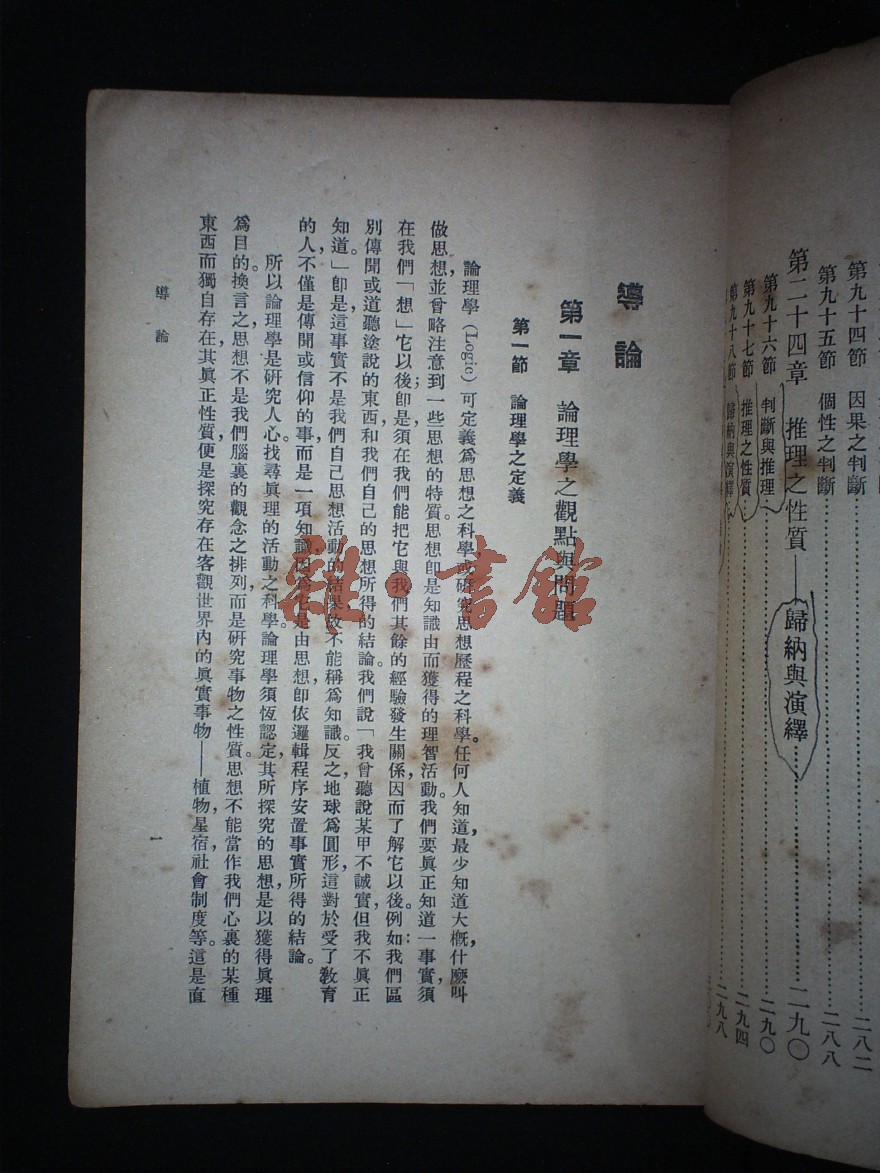 第九十四節　因果之判斷……二八二
第九十五節　個性之判斷……二八八
第二十四章　推理之性質——歸納與演繹……二九〇
第九十六節　判斷與推理……二九〇
第九十七節　推理之性質……二九四
第九十八節　歸納與演繹……二九八
導論
第一章　論理學之觀點與問題
第一節　論理學之定義
論理學(Logic)可定義爲思想之科學，或研究思想歷程之科學。任何人知道，最少知道大概，什麼叫
做思想，並曾略注意到一些思想的特質。思想卽是知識由而獲得的理智活動。我們要眞正知道一事實，須
在我們「想」它以後；卽是，須在我們能把它與我們其餘的經驗發生關係，因而了解它以後。例如：我們區
別傳聞或道聽塗說的東西和我們自己的思想所得的結論。我們說「我曾聽說某甲不誠實，但我不眞正
知道。」卽是這事實不是我們自己思想活動的結果，故不能稱爲知識。反之，地球爲圓形，這對於受了教育
的人，不僅是傳聞或信仰的事，而是一項知識，因爲它是由思想，卽依邏輯程序安置事實所得的結論。
所以論理學是研究人心。找尋眞理的活動之科學。論理學須恆認定，其所探究的思想，是以獲得眞理
爲目的。換言之，思想不是我們腦裏的觀念之排列，而是研究事物之性質。思想不能當作我們心裏的某種
東西而獨自存在，其眞正性質，便是探究存在客觀世界內的眞實事物——植物，星宿，社會制度等。這是直
導論
一
雜·書館